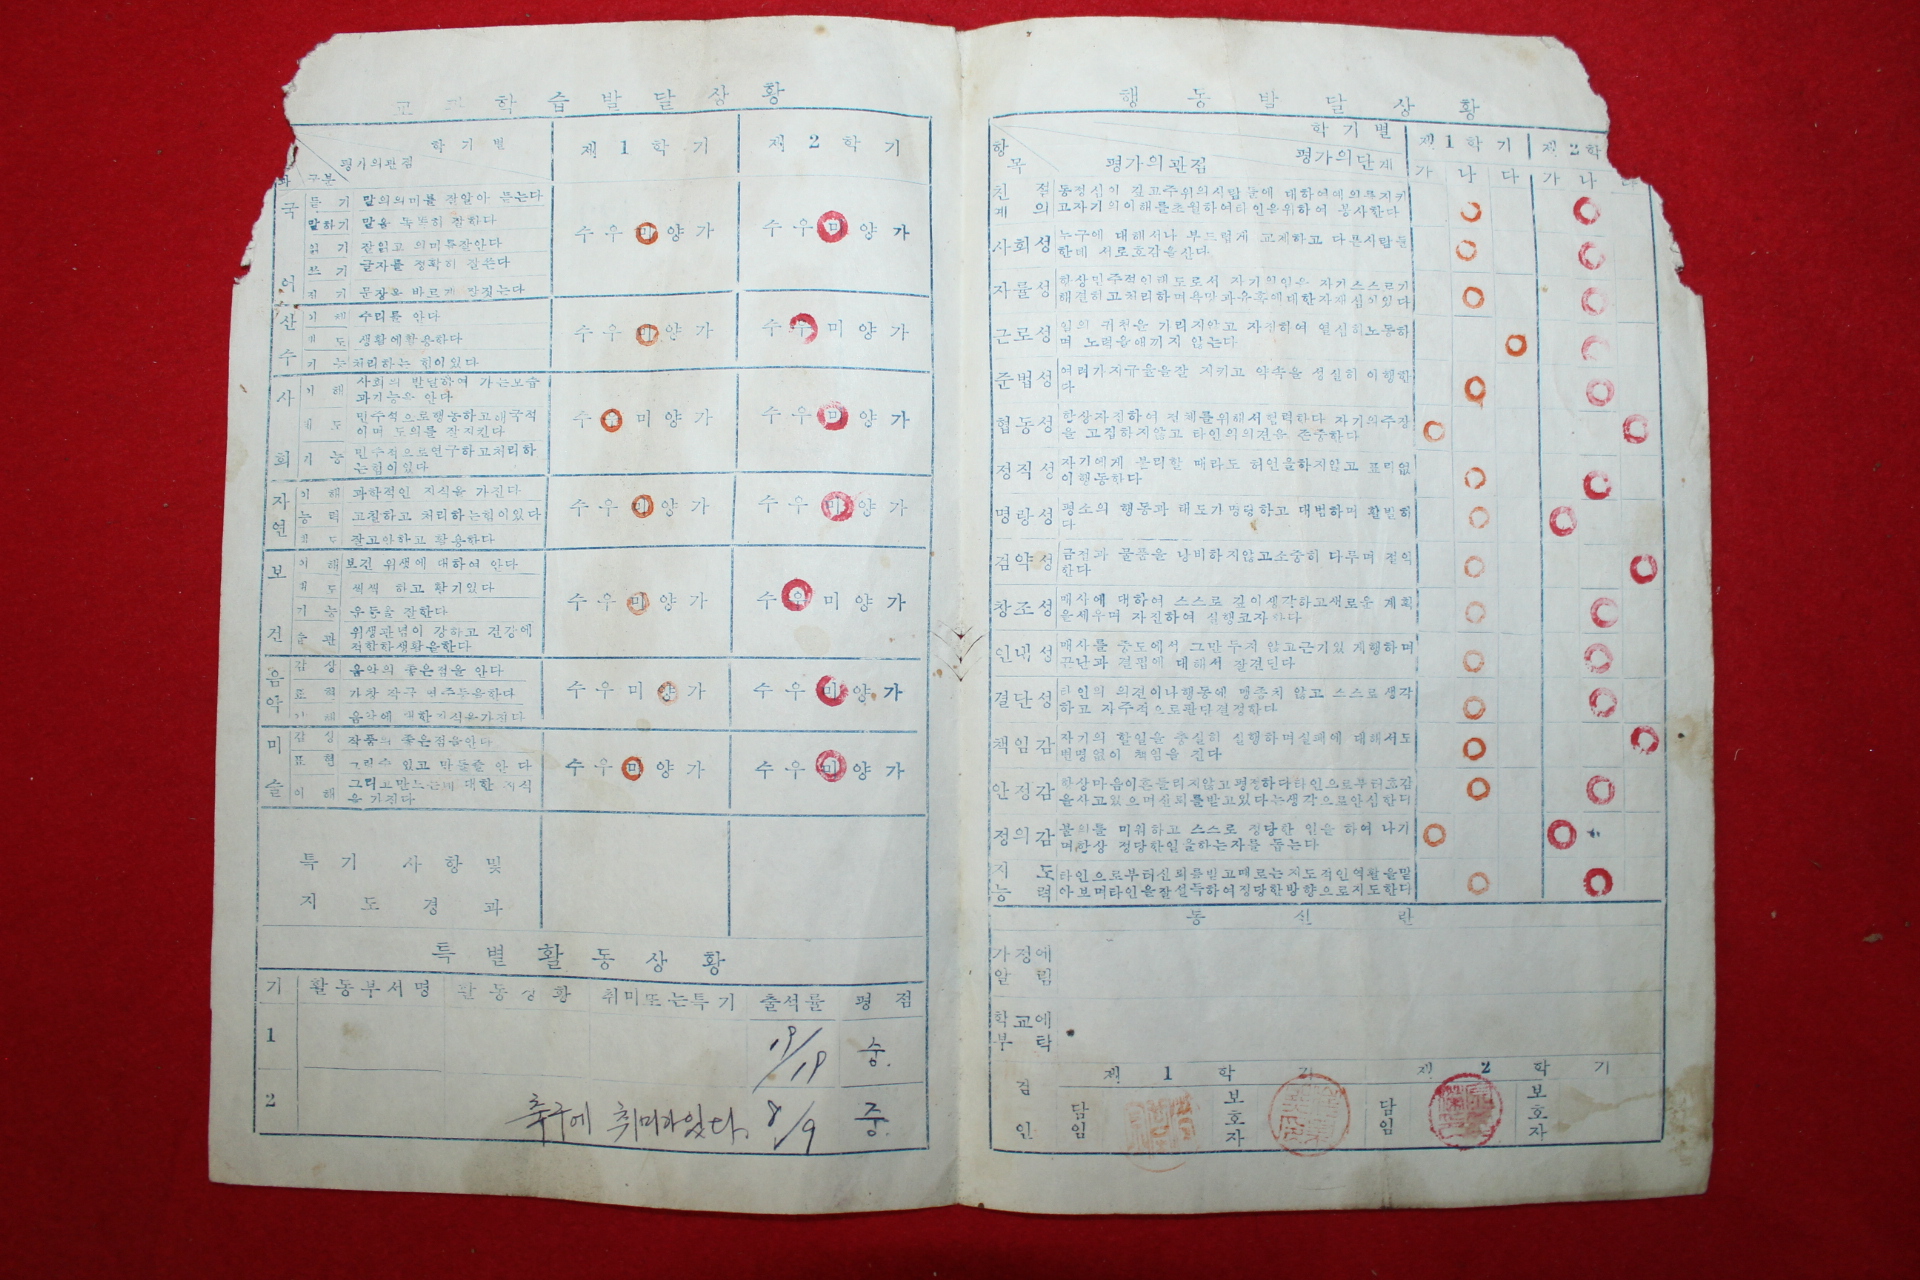 교 과 학 습 발 달 상 황
학 기 별
평가의관점
구분
제 1 학 기
제 2 학 기
국 어
듣 기 말의의미를 잘알아 듣는다
말하기 말을 똑똑히 잘하다
읽 기 잘읽고 의미를잘안다
쓰 기 글자를 정확히 잘쓴다
짓 기 문장을 바르게 잘짓는다
수 우 미 양 가
수 우 미 양 가
산 수
이 해 수리를 안다
태 도 생활에활용하다
기 능 처리하는 힘이있다
수 우 미 양 가
수 우 미 양 가
사 회
이 해 사회의 발달하여 가는모습
과기능을 안다
태 도 민주적으로행동하고애국적
이며 도의를 잘지킨다
기 능 민주적으로연구하고처리하
는힘이있다
수 우 미 양 가
수 우 미 양 가
자 연
이 해 과학적인 지식을 가진다
능 력 고찰하고 처리하는힘이있다
태 도 잘고안하고 활용하다
수 우 미 양 가
수 우 미 양 가
보 건
이 해 보건 위생에 대하여 안다
태 도 씩씩 하고 활기있다
기 능 운동을 잘한다
습 관 위생관념이 강하고 건강에
적합한생활을한다
수 우 미 양 가
수 우 미 양 가
음 악
감 상 음악의 좋은점을 안다
표 현 가창 작곡 연주등을한다
이 해 음악에 대한지식을가진다
수 우 미 양 가
수 우 미 양 가
미 술
감 상 작품의 좋은점을안다
표 현 그릴수 있고 만들줄 안 다
이 해 그리고만드는데 대한 지식
을 가진다
수 우 미 양 가
수 우 미 양 가
특 기 사 항 및
지 도 경 과
특 별 활 동 상 황
기 활동부서명 활 동 상 황 취미또는특기 출석률 평 점
1 19/19 중.
2 축구에 취미가있다. 8/9 중.
행 동 발 달 상 황
학 기 별
항 목 평가의관점 평가의단계
제 1 학 기 제 2 학
가 나 다 가 나
친 절 동정심이 깊고주위의사람들에 대하여예의를지키
예 의 고자기의이해를초월하여타인을위하여 봉사한다
사회성 누구에 대해서나 부드럽게 교제하고 다른사람들
한테 서로호감을산다
자률성 항상민주적인태도로서 자기의일은 자기스스로가
해결하고처리하며욕망과유혹에대한자제심이있다
근로성 일의 귀천을 가리지않고 자진하여 열심히노동하
며 노력을애끼지 않는다
준법성 여러가지규률을잘 지키고 약속을 성실히 이행한
다
협동성 항상자진하여 전체를위해서협력하다 자기의주장
을 고집하지않고 타인의의견을 존중한다
정직성 자기에게 불리할 때라도 허언을하지않고 표리없
이행동한다
명랑성 평소의 행동과 태도가명랑하고 대범하며 활발하
다
검약성 금전과 물품을 낭비하지않고소중히 다루며 절약
한다
창조성 매사에 대하여 스스로 깊이생각하고새로운 계획
을세우며 자진하여 실행코자한다
인내성 매사를 중도에서 그만두지 않고근기있 게행하며
곤난과 결핍에 대해서 잘견딘다
결단성 타인의 의견이나행동에 맹종치 않고 스스로생각
하고 자주적으로판단결정한다
책임감 자기의 할일을 충실히 실행하며실패에 대해서도
변명없이 책임을 진다
안정감 항상마음이흔들리지않고평정하다타인으로부터호감
을사고있으며신뢰를받고있다는생각으로안심한다
정의감 불의를 미워하고 스스로 정당한 일을 하여 나가
며항상 정당한일을하는자를 돕는다
지 도 타인으로부터신뢰를받고때로는지도적인역할을맡
능 력 아보며타인을잘설득하여정당한방향으로지도한다
통 신 란
가정에
알 림
학교에
부 탁
제 1 학 기 제 2 학 기
검 인 담임 보호자 담임 보호자